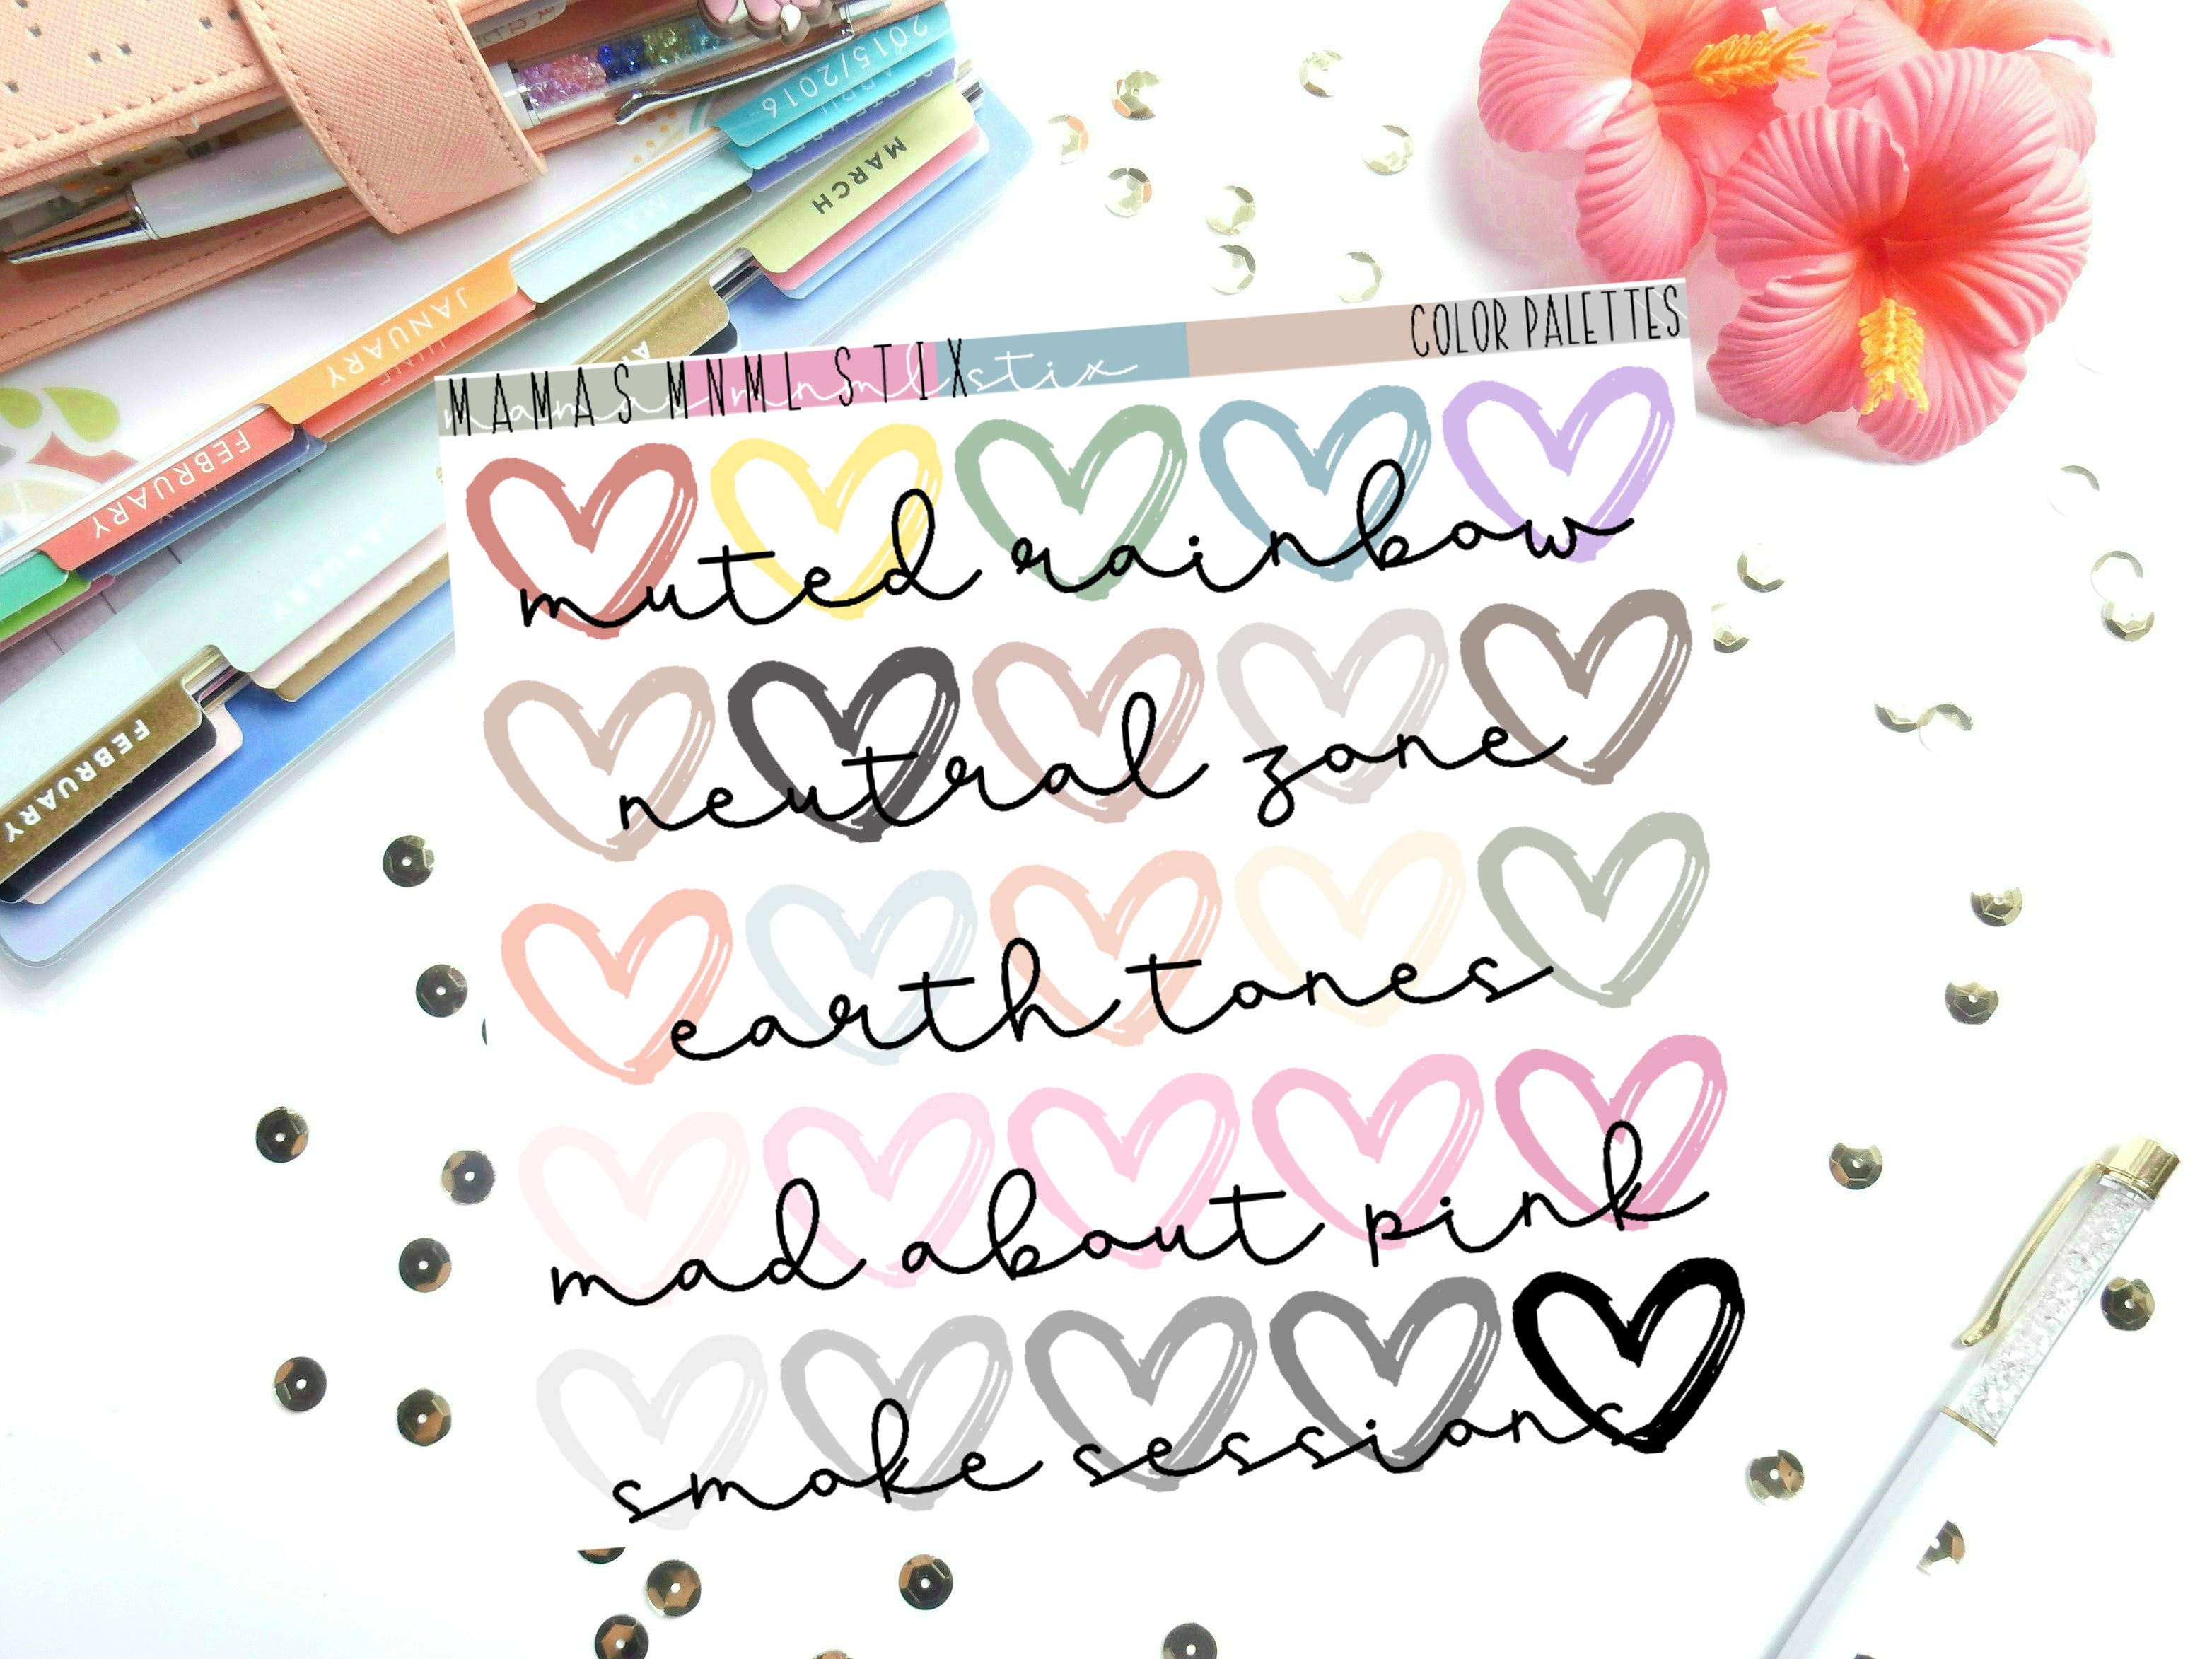 2015/2016
MARCH
MAY
JANUARY
FEBRUARY
JANUARY
FEBRUARY
MAMAS MNML STIX
mamas mnml stix
COLOR PALETTES
muted rainbow
neutral zone
earth tones
mad about pink
smoke sessions